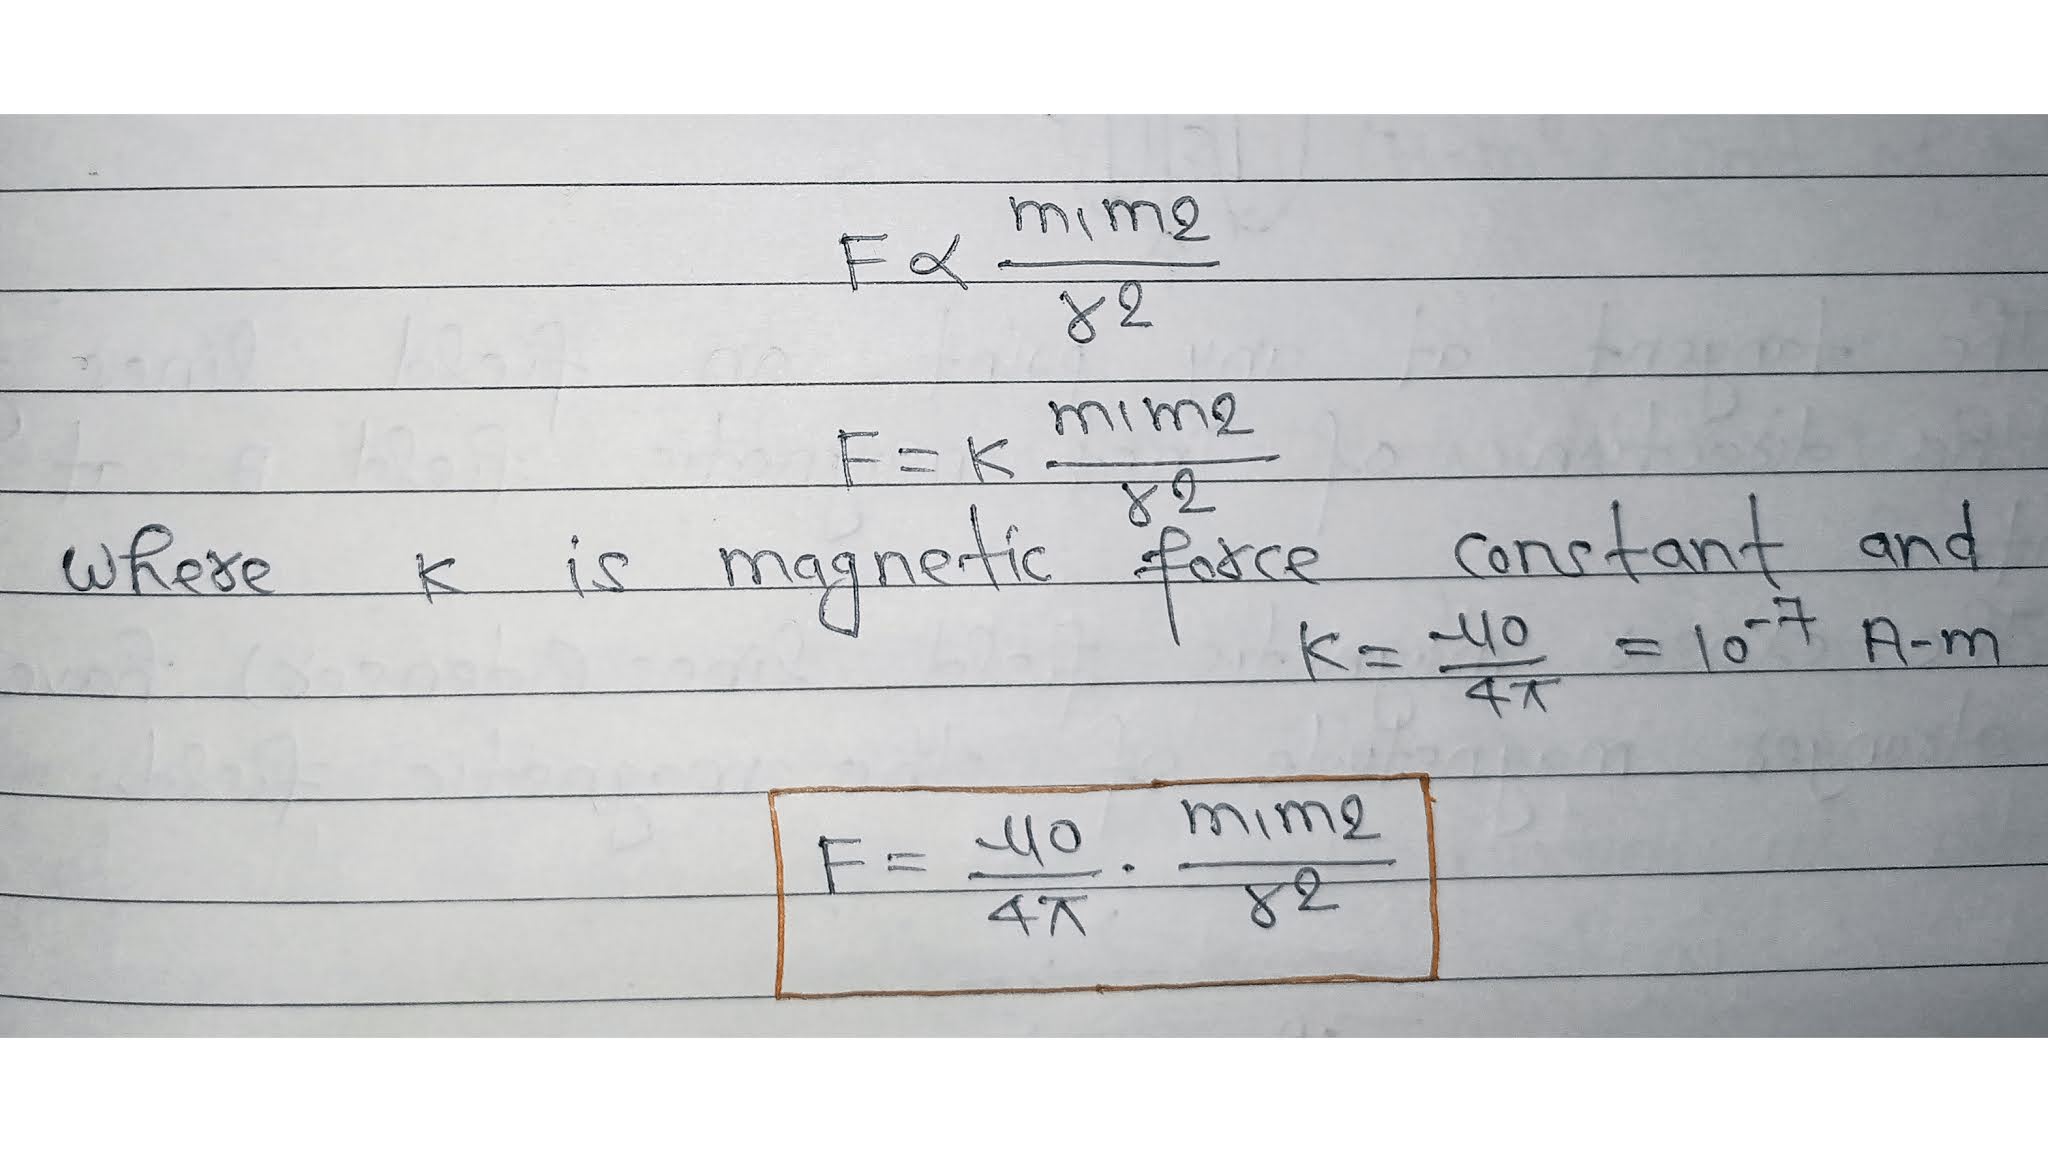 F ∝ m1m2 / r2
F = K m1m2 / r2
where K is magnetic force constant and
K = μ0 / 4π = 10⁻⁷ A-m
F = μ0 / 4π . m1m2 / r2